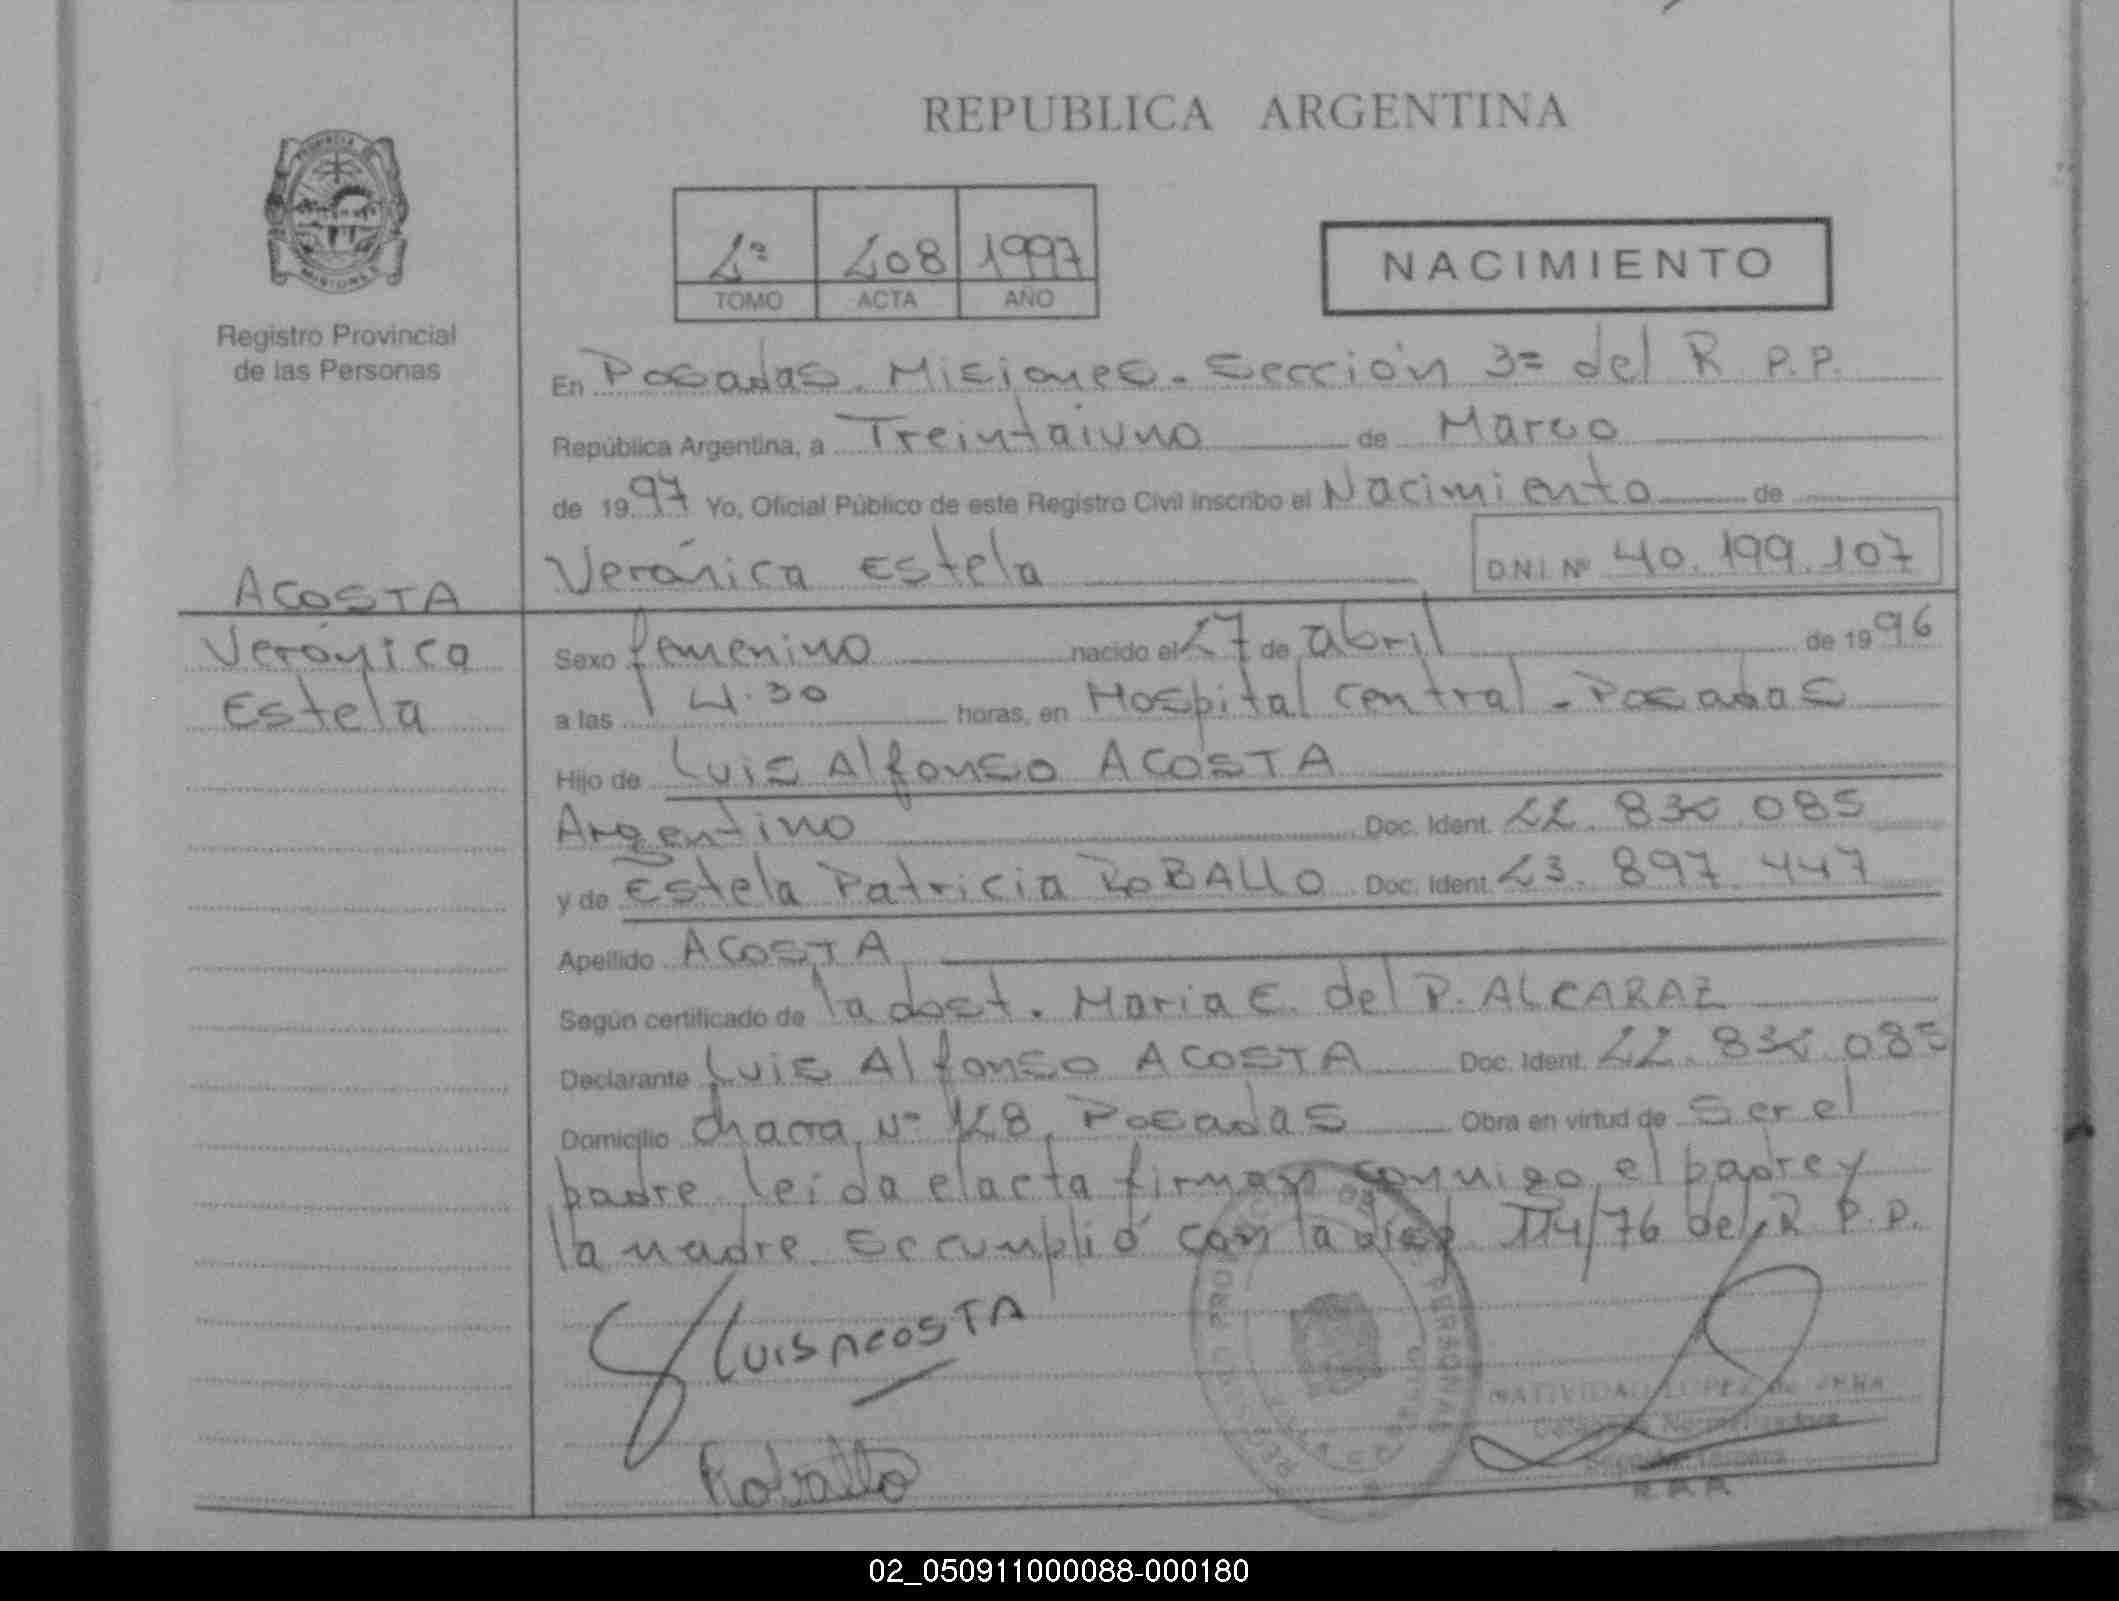 REPUBLICA ARGENTINA
PROVINCIA DE
MISIONES
Registro Provincial
de las Personas
2º 208 1997
TOMO ACTA AÑO
NACIMIENTO
En Posadas. Misiones. Sección 3= del R P.P.
República Argentina, a Treintaiuno de Marzo
de 1997 Yo, Oficial Público de este Registro Civil inscribo el Nacimiento de
Verónica Estela D.N.I. Nº 40.199.107
ACOSTA
Verónica
Estela
Sexo femenino nacido el 27 de abril de 1996
a las 14.30 horas, en Hospital central - Posadas
Hijo de Luis Alfonso ACOSTA
Argentino Doc. Ident. 22. 085
y de Estela Patricia RoBALLO Doc. Ident. 23. 897 447
Apellido ACOSTA
Según certificado de la obst. Maria E. del P. ALCARAZ
Declarante Luis Alfonso ACOSTA Doc. Ident. 22. 085
Domicilio chacra Nº 128, Posadas Obra en virtud de Ser el
padre leida el acta firman conmigo el padre y
la madre. Se cumplió con la disp. 114/76 del R P.P.
LUIS ACOSTA
Roballo
NATIVIDAD LOPEZ de
02_050911000088-000180